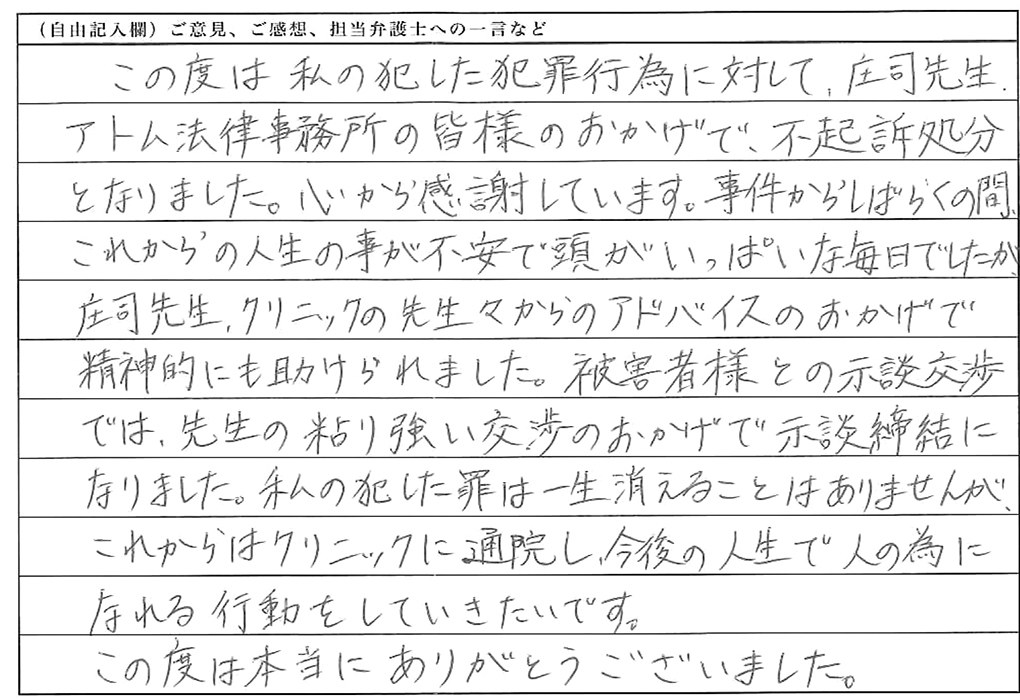 （自由記入欄）ご意見、ご感想、担当弁護士への一言など
この度は私の犯した犯罪行為に対して、庄司先生、
アトム法律事務所の皆様のおかげで、不起訴処分
となりました。心から感謝しています。事件からしばらくの間、
これからの人生の事が不安で頭がいっぱいな毎日でしたが、
庄司先生、クリニックの先生々からのアドバイスのおかげで
精神的にも助けられました。被害者様との示談交渉
では、先生の粘り強い交渉のおかげで示談締結に
なりました。私の犯した罪は一生消えることはありませんが、
これからはクリニックに通院し、今後の人生で人の為に
なれる行動をしていきたいです。
この度は本当にありがとうございました。